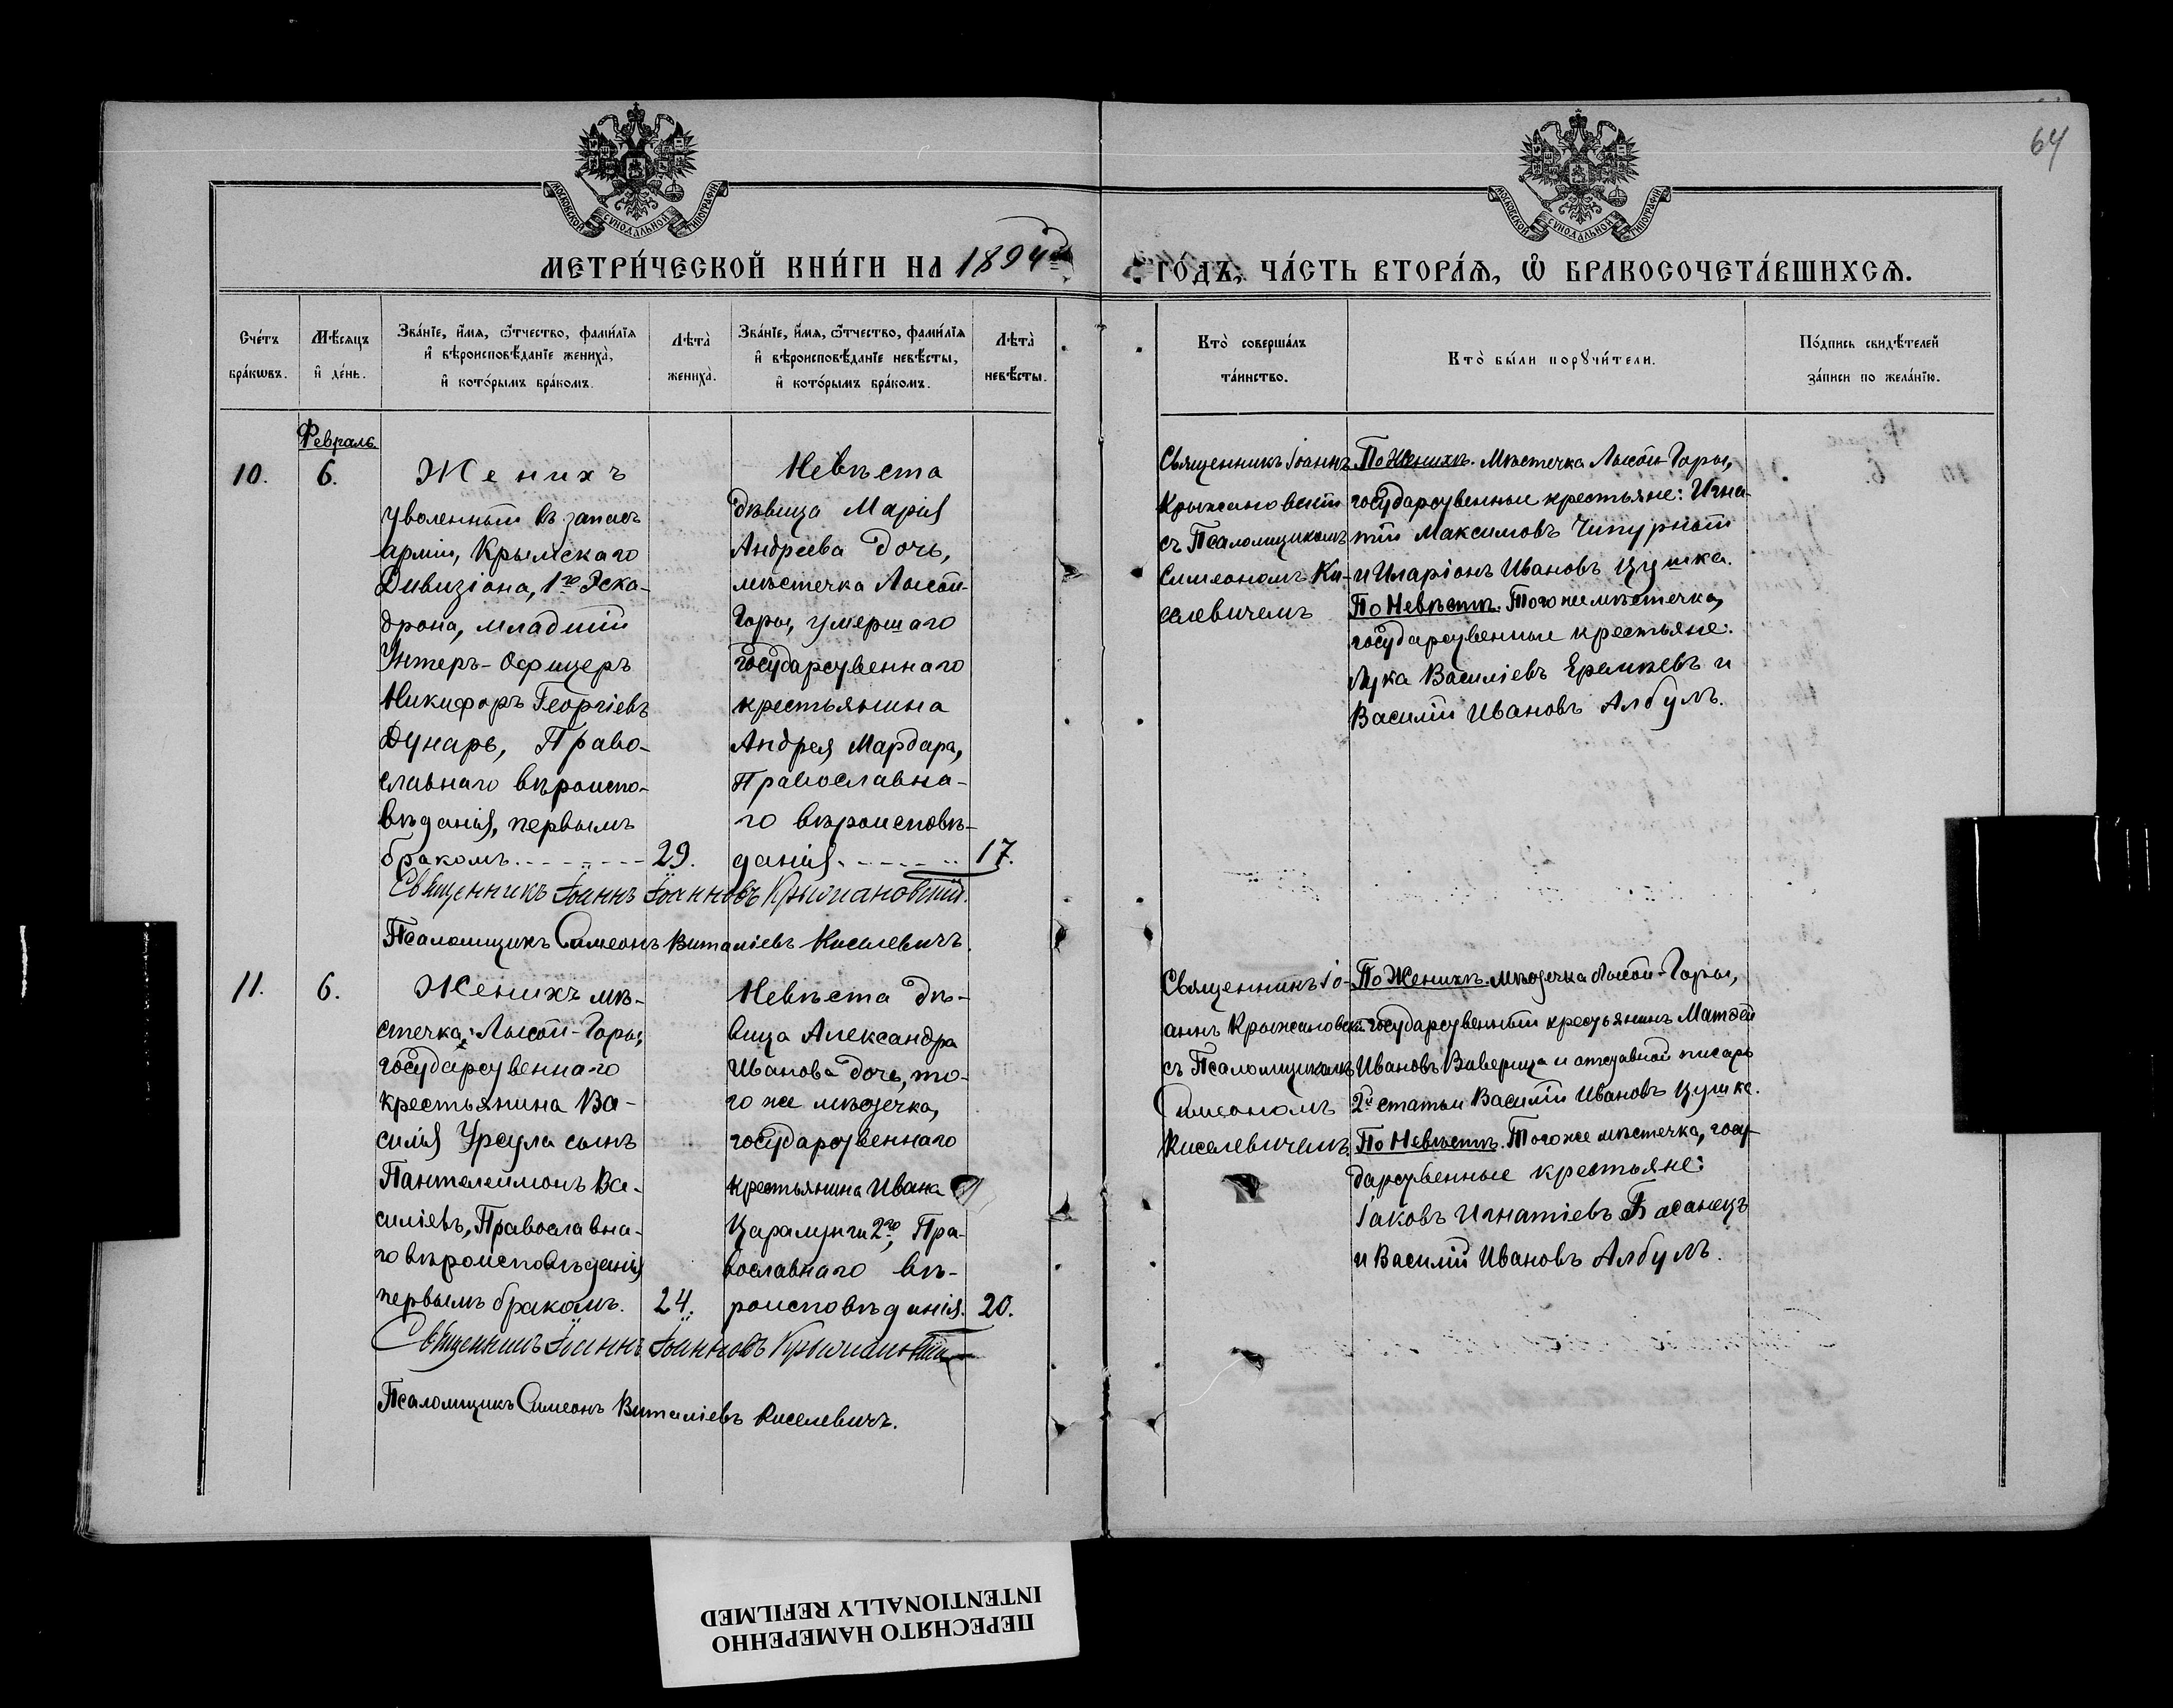 64
МОСКОВСКОЙ СУНОДАЛЬНОЙ ТИПОГРАФІИ
МОСКОВСКОЙ СУНОДАЛЬНОЙ ТИПОГРАФІИ
МЕТРИ́ЧЕСКОЙ КНИ́ГИ НА 1894й ГО́ДЪ, ЧА́СТЬ ВТОРА́Ѧ, Ѡ҆ БРАКОСОЧЕТА́ВШИХСѦ.
Счетъ бра́кѡвъ.
Мѣ́сяцъ и҆ де́нь.
Зва́нїе, и҆́мѧ, ѻ҆́тчество, фами́лїѧ и҆ вѣроисповѣ́данїе жениха̀, и҆ кото́рымъ бра́комъ.
Лѣта̀ жениха̀.
Зва́нїе, и҆́мѧ, ѻ҆́тчество, фами́лїѧ и҆ вѣроисповѣ́данїе невѣ́сты, и҆ кото́рымъ бра́комъ.
Лѣта̀ невѣ́сты.
Кто̀ соверша́лъ та́инство.
Кто̀ бы́ли порꙋчи́тели.
По́дпись свидѣ́телей за́писи по жела́нїю.
Февраль.
10.
6.
Женихъ
уволенный въ запасъ
арміи, Крымскаго
Дивизіона, 1го Эска-
дрона, младшій
Унтеръ-Офицеръ
Никифоръ Георгіевъ
Дунарь, Право-
славнаго вѣроиспо-
вѣданія, первымъ
бракомъ
29.
Невѣста
дѣвица Марія
Андреева дочь,
мѣстечка Лысой-
Горы, умершаго
государственнаго
крестьянина
Андрея Мардаря,
Православна-
го вѣроисповѣ-
данія
17.
Священникъ Іоаннъ
Крыжановскій
съ Псаломщикомъ
Симеономъ Ки-
селевичемъ
По Женихѣ. Мѣстечка Лысой-Горы,
государственные крестьяне: Игна-
тій Максимовъ Чипурной
и Иларіонъ Ивановъ Цушка.
По Невѣстѣ. Того же мѣстечка,
государственные крестьяне:
Лука Василіевъ Еремѣевъ и
Василій Ивановъ Албулъ.
Священникъ Іоаннъ Іоанновъ Крыжановскій.
Псаломщикъ Симеонъ Виталіевъ Киселевичъ.
11.
6.
Женихъ мѣ-
стечка Лысой-Горы,
государственнаго
крестьянина Ва-
силія Урсула сынъ
Пантелеимонъ Ва-
силіевъ, Православна-
го вѣроисповѣданія
первымъ бракомъ.
24.
Невѣста дѣ-
вица Александра
Иванова дочь, то-
го же мѣстечка,
государственнаго
крестьянина Ивана
Царалунги 2го, Пра-
вославнаго вѣ-
роисповѣданія.
20.
Священникъ Іо-
аннъ Крыжановскій
съ Псаломщикомъ
Симеономъ
Киселевичемъ.
По Женихѣ. мѣстечка Лысой-Горы,
государственный крестьянинъ Матѳей
Ивановъ Виверица и отставной писарь
2й статьи Василій Ивановъ Цушка.
По Невѣстѣ. Того же мѣстечка, госу-
дарственные крестьяне:
Іаковъ Игнатіевъ Басанецъ
и Василій Ивановъ Албулъ.
Священникъ Іоаннъ Іоанновъ Крыжановскій
Псаломщикъ Симеонъ Виталіевъ Киселевичъ.
ПЕРЕСНЯТО НАМЕРЕННО
INTENTIONALLY REFILMED